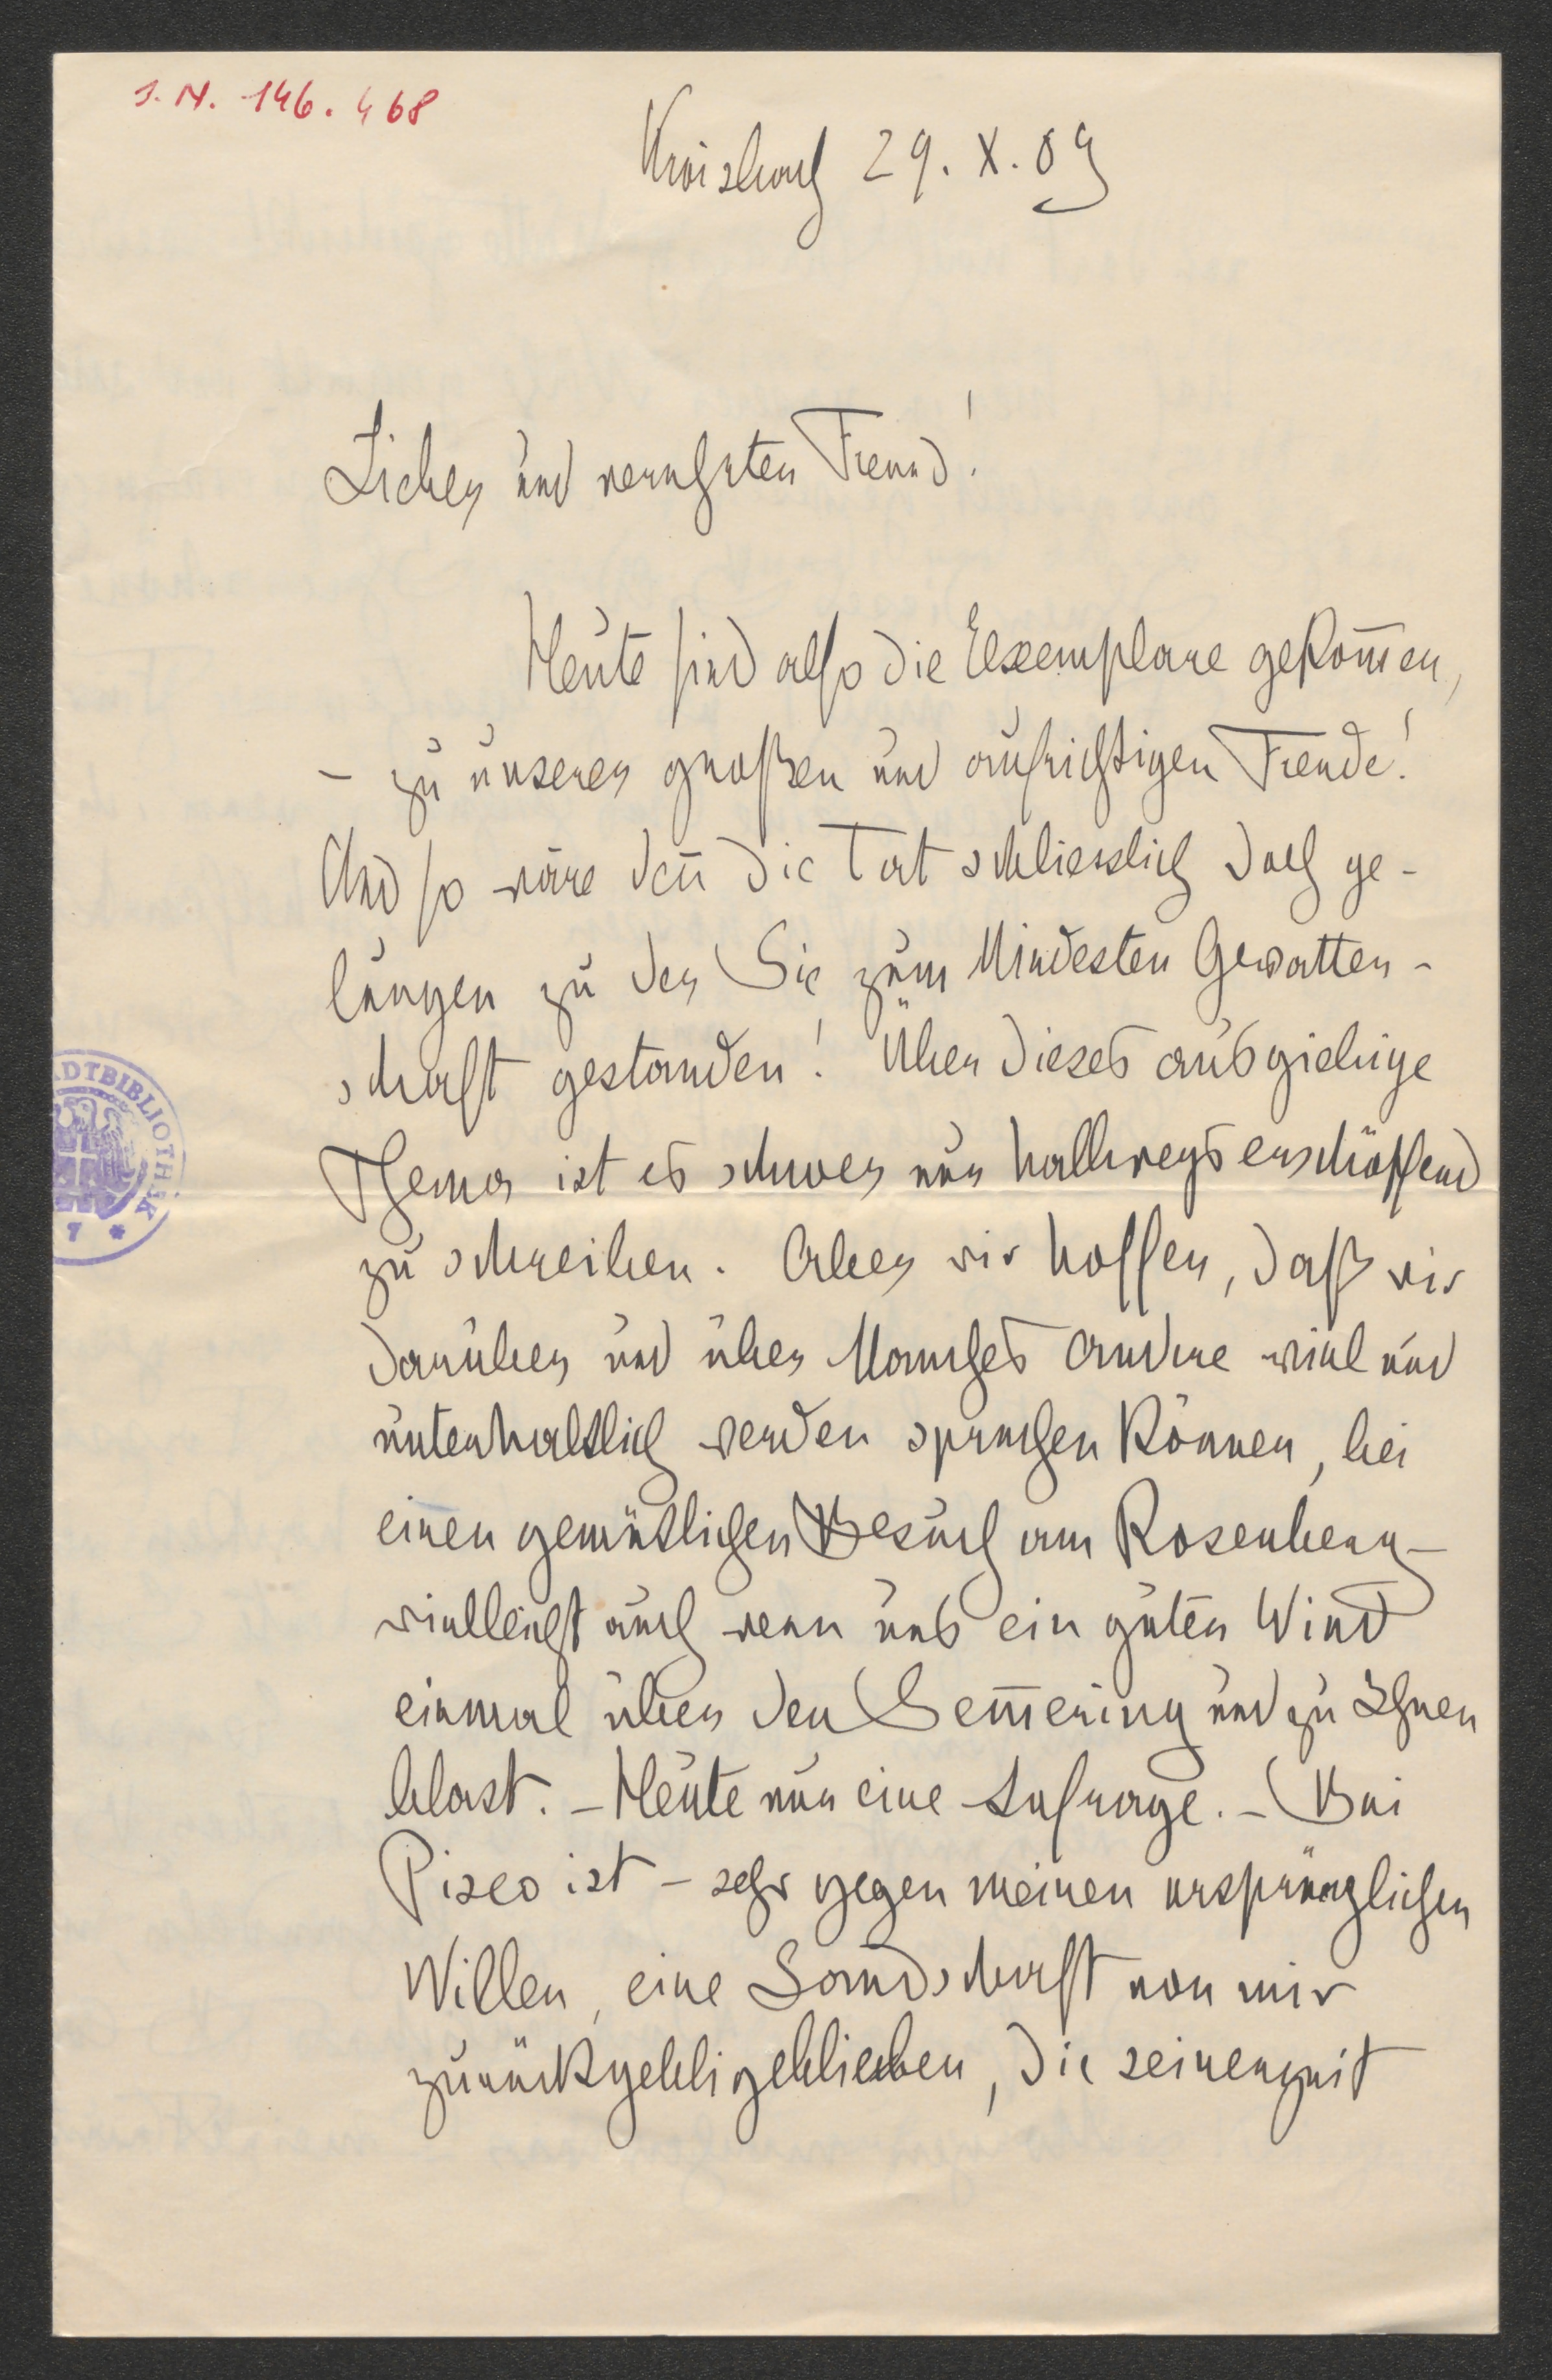 J. N. 146.468
Kroisbach 29. X. 09
Lieber und verehrter Freund!
Heute sind also die Exemplare gekom̅en,
– zu unserer großen und aufrichtigen Freude!
Und so wäre den̅ die Tat schliesslich doch ge-
lungen zu der Sie zum Mindesten Gevatter-
schaft gestanden! Über dieses ausgiebige
Thema ist es schwer nur halbwegs erschöpfend
zu schreiben. Aber wir hoffen, daß wir
darüber und über Manches Andere viel und
unterhaltlich werden sprechen können, bei
einen gemütlichen Besuch am Rosenberg –
vielleicht auch wenn uns ein guter Wind
einmal über den Sem̅ering und zu Ihnen
blast. – Heute nur eine Anfrage. – Bei
Pisco ist – sehr gegen meinen ursprünglichen
Willen, eine Landschaft von mir
zurückgebligeblieben, die seinerzeit
ADTBIBLIOTHEK
7 *